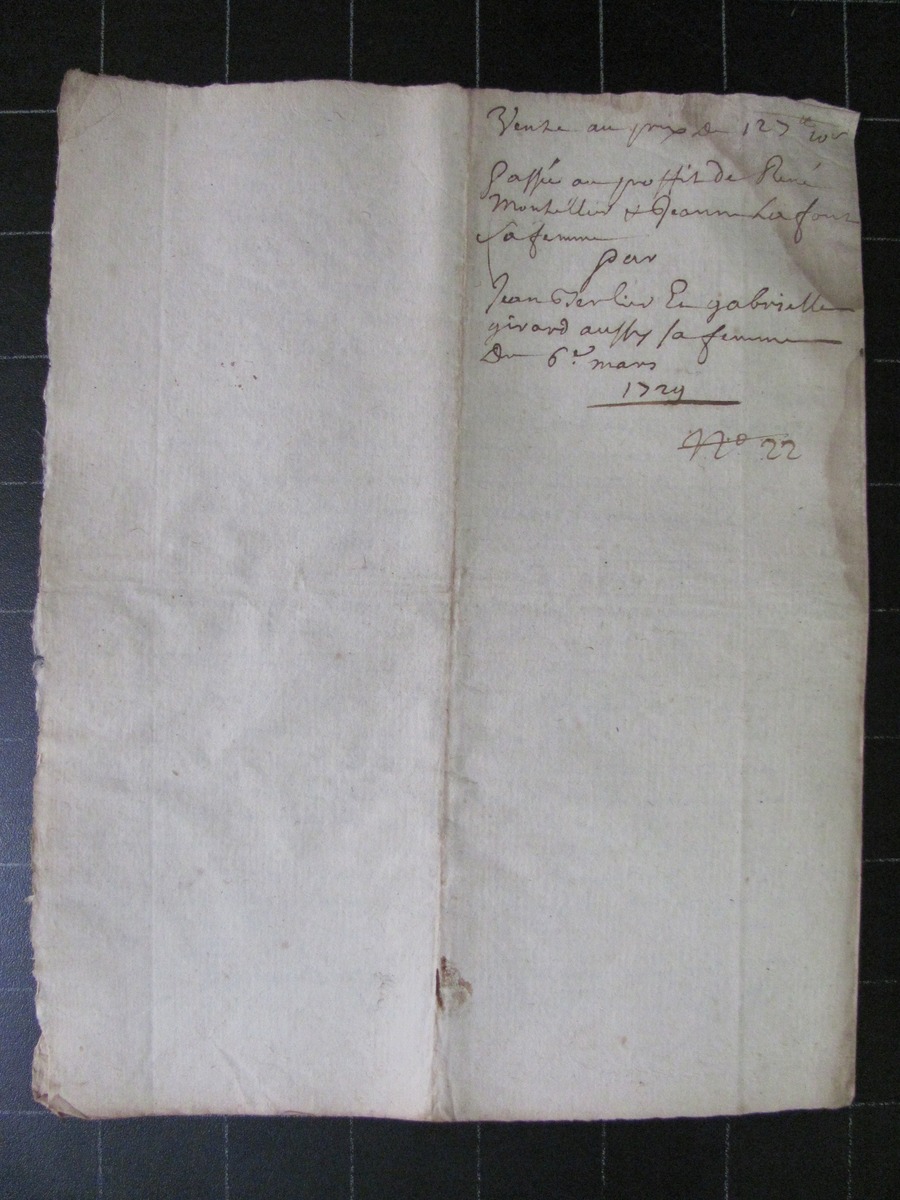 Vente au prix de 127ᵗᵗ 10ˢ
Passée au proffit de René
Montellier & Jeanne Lafont
sa femme
par
Jean Terlier Et gabrielle
girard aussy sa femme
Du 6ᵉ mars
1729
Nº 22